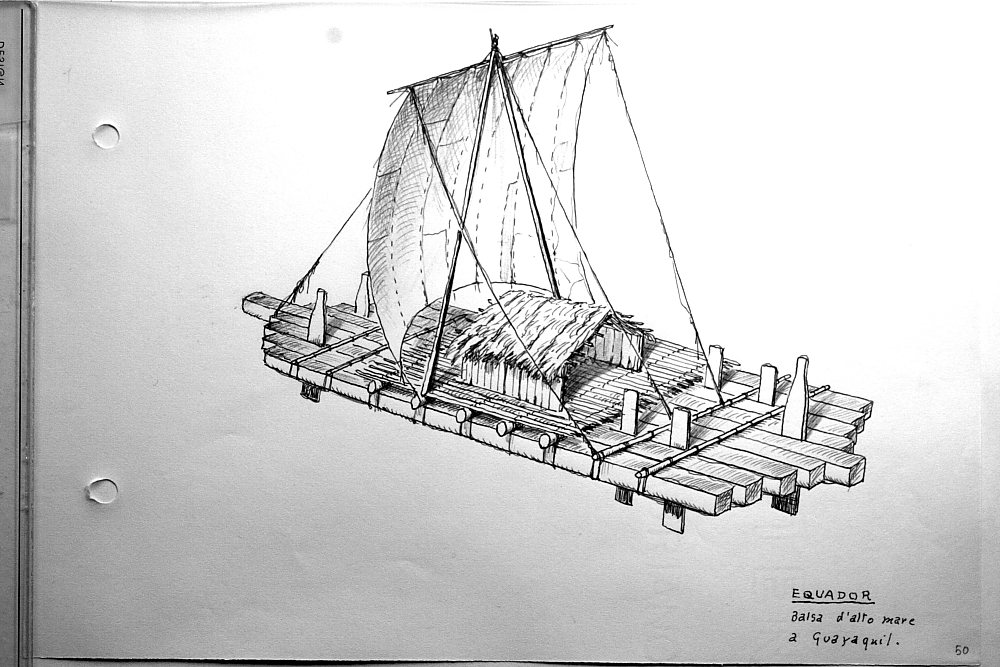 DESIGN
EQUADOR
Balsa d'alto mare
a Guayaquil.
50